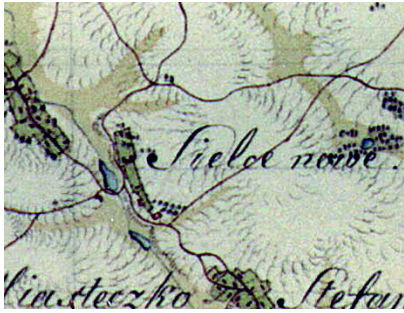 Sielce nowe.
liasteczko Stefan